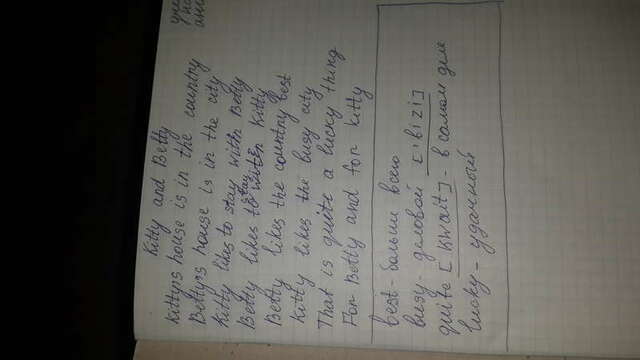 Kitty and Betty
Kitty's house is in the country
Betty's house is in the city
Kitty likes to stay with Betty
Betty likes to stay with Kitty
Betty likes the country best
Kitty likes the busy city
That is quite a lucky thing
For Betty and for Kitty
best - больше всего
busy - деловой ['bizi]
quite [kwait] - в самом деле
lucky - удачный